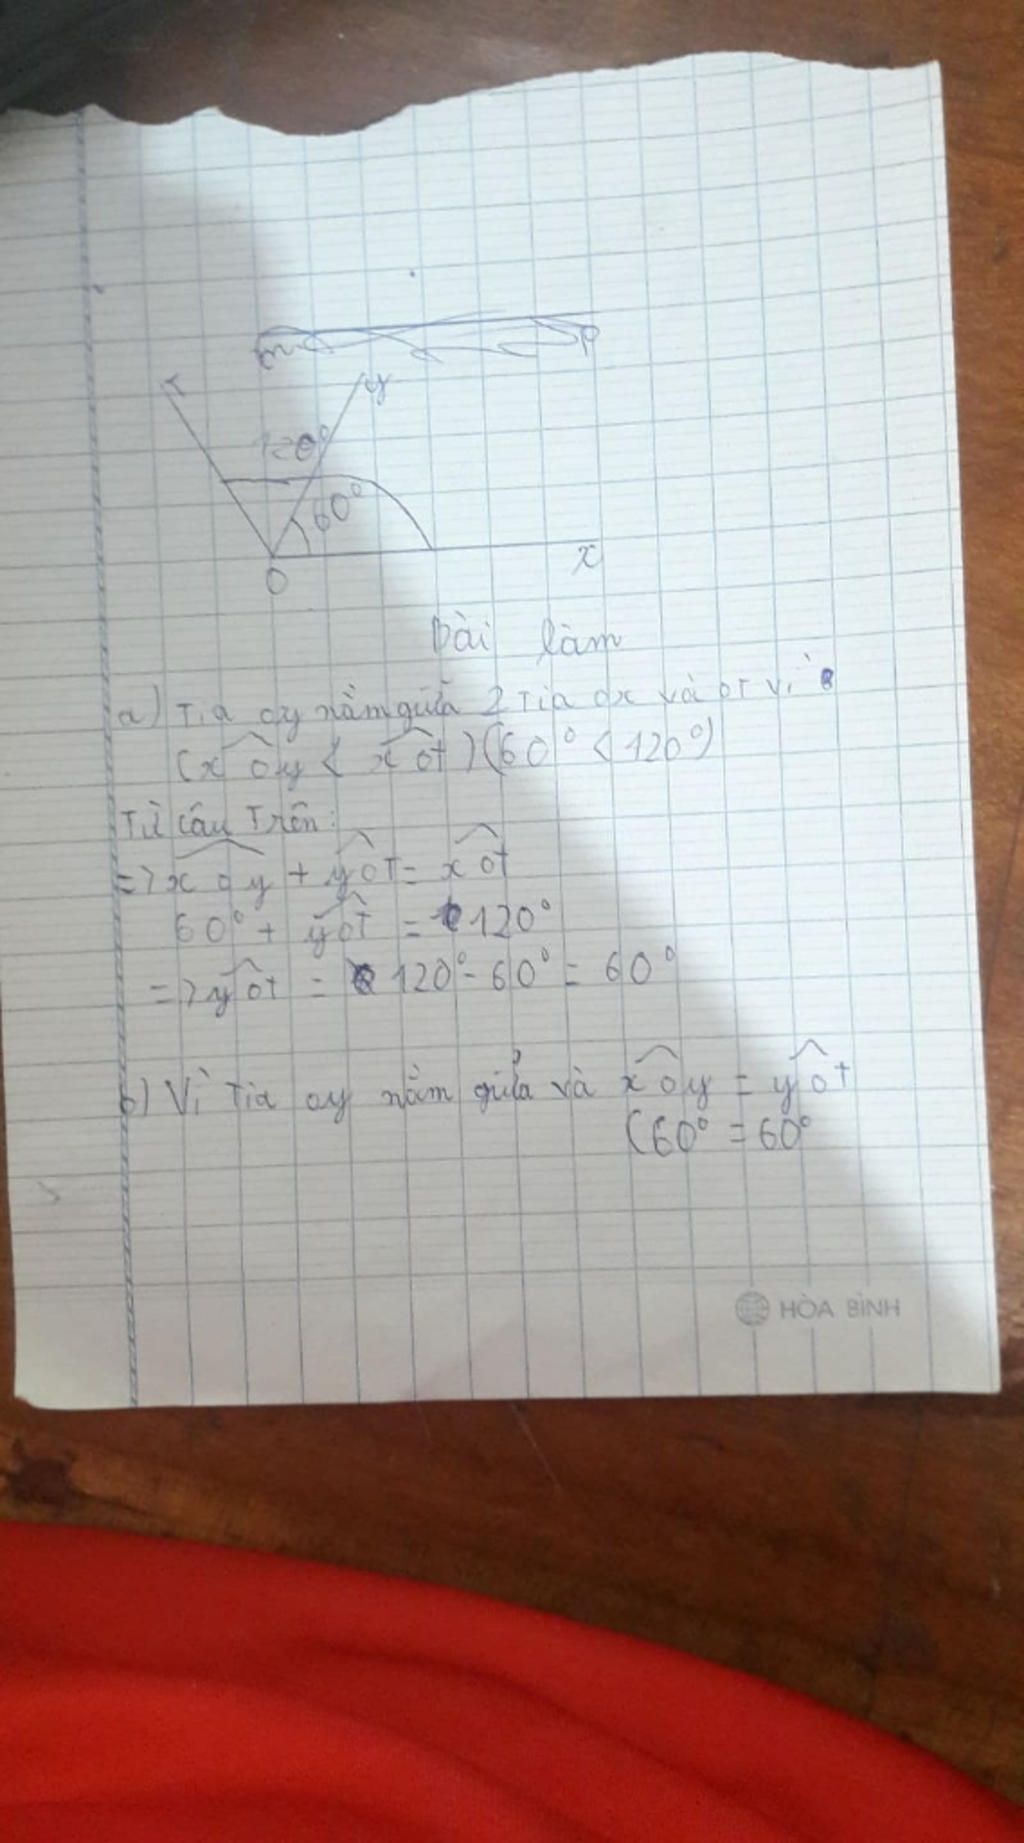 y
120°
60°
x
O
Bài làm
a) Tia oy nằm giữa 2 Tia ox và oT vì
(xôy < xôt) (60° < 120°)
Từ câu Trên:
=> xôy + yôT = xôt
60° + yôt = 120°
=> yôt = 120° - 60° = 60°
b) Vì Tia oy nằm giửa và xôy = yôt
(60° = 60°
HÒA BÌNH